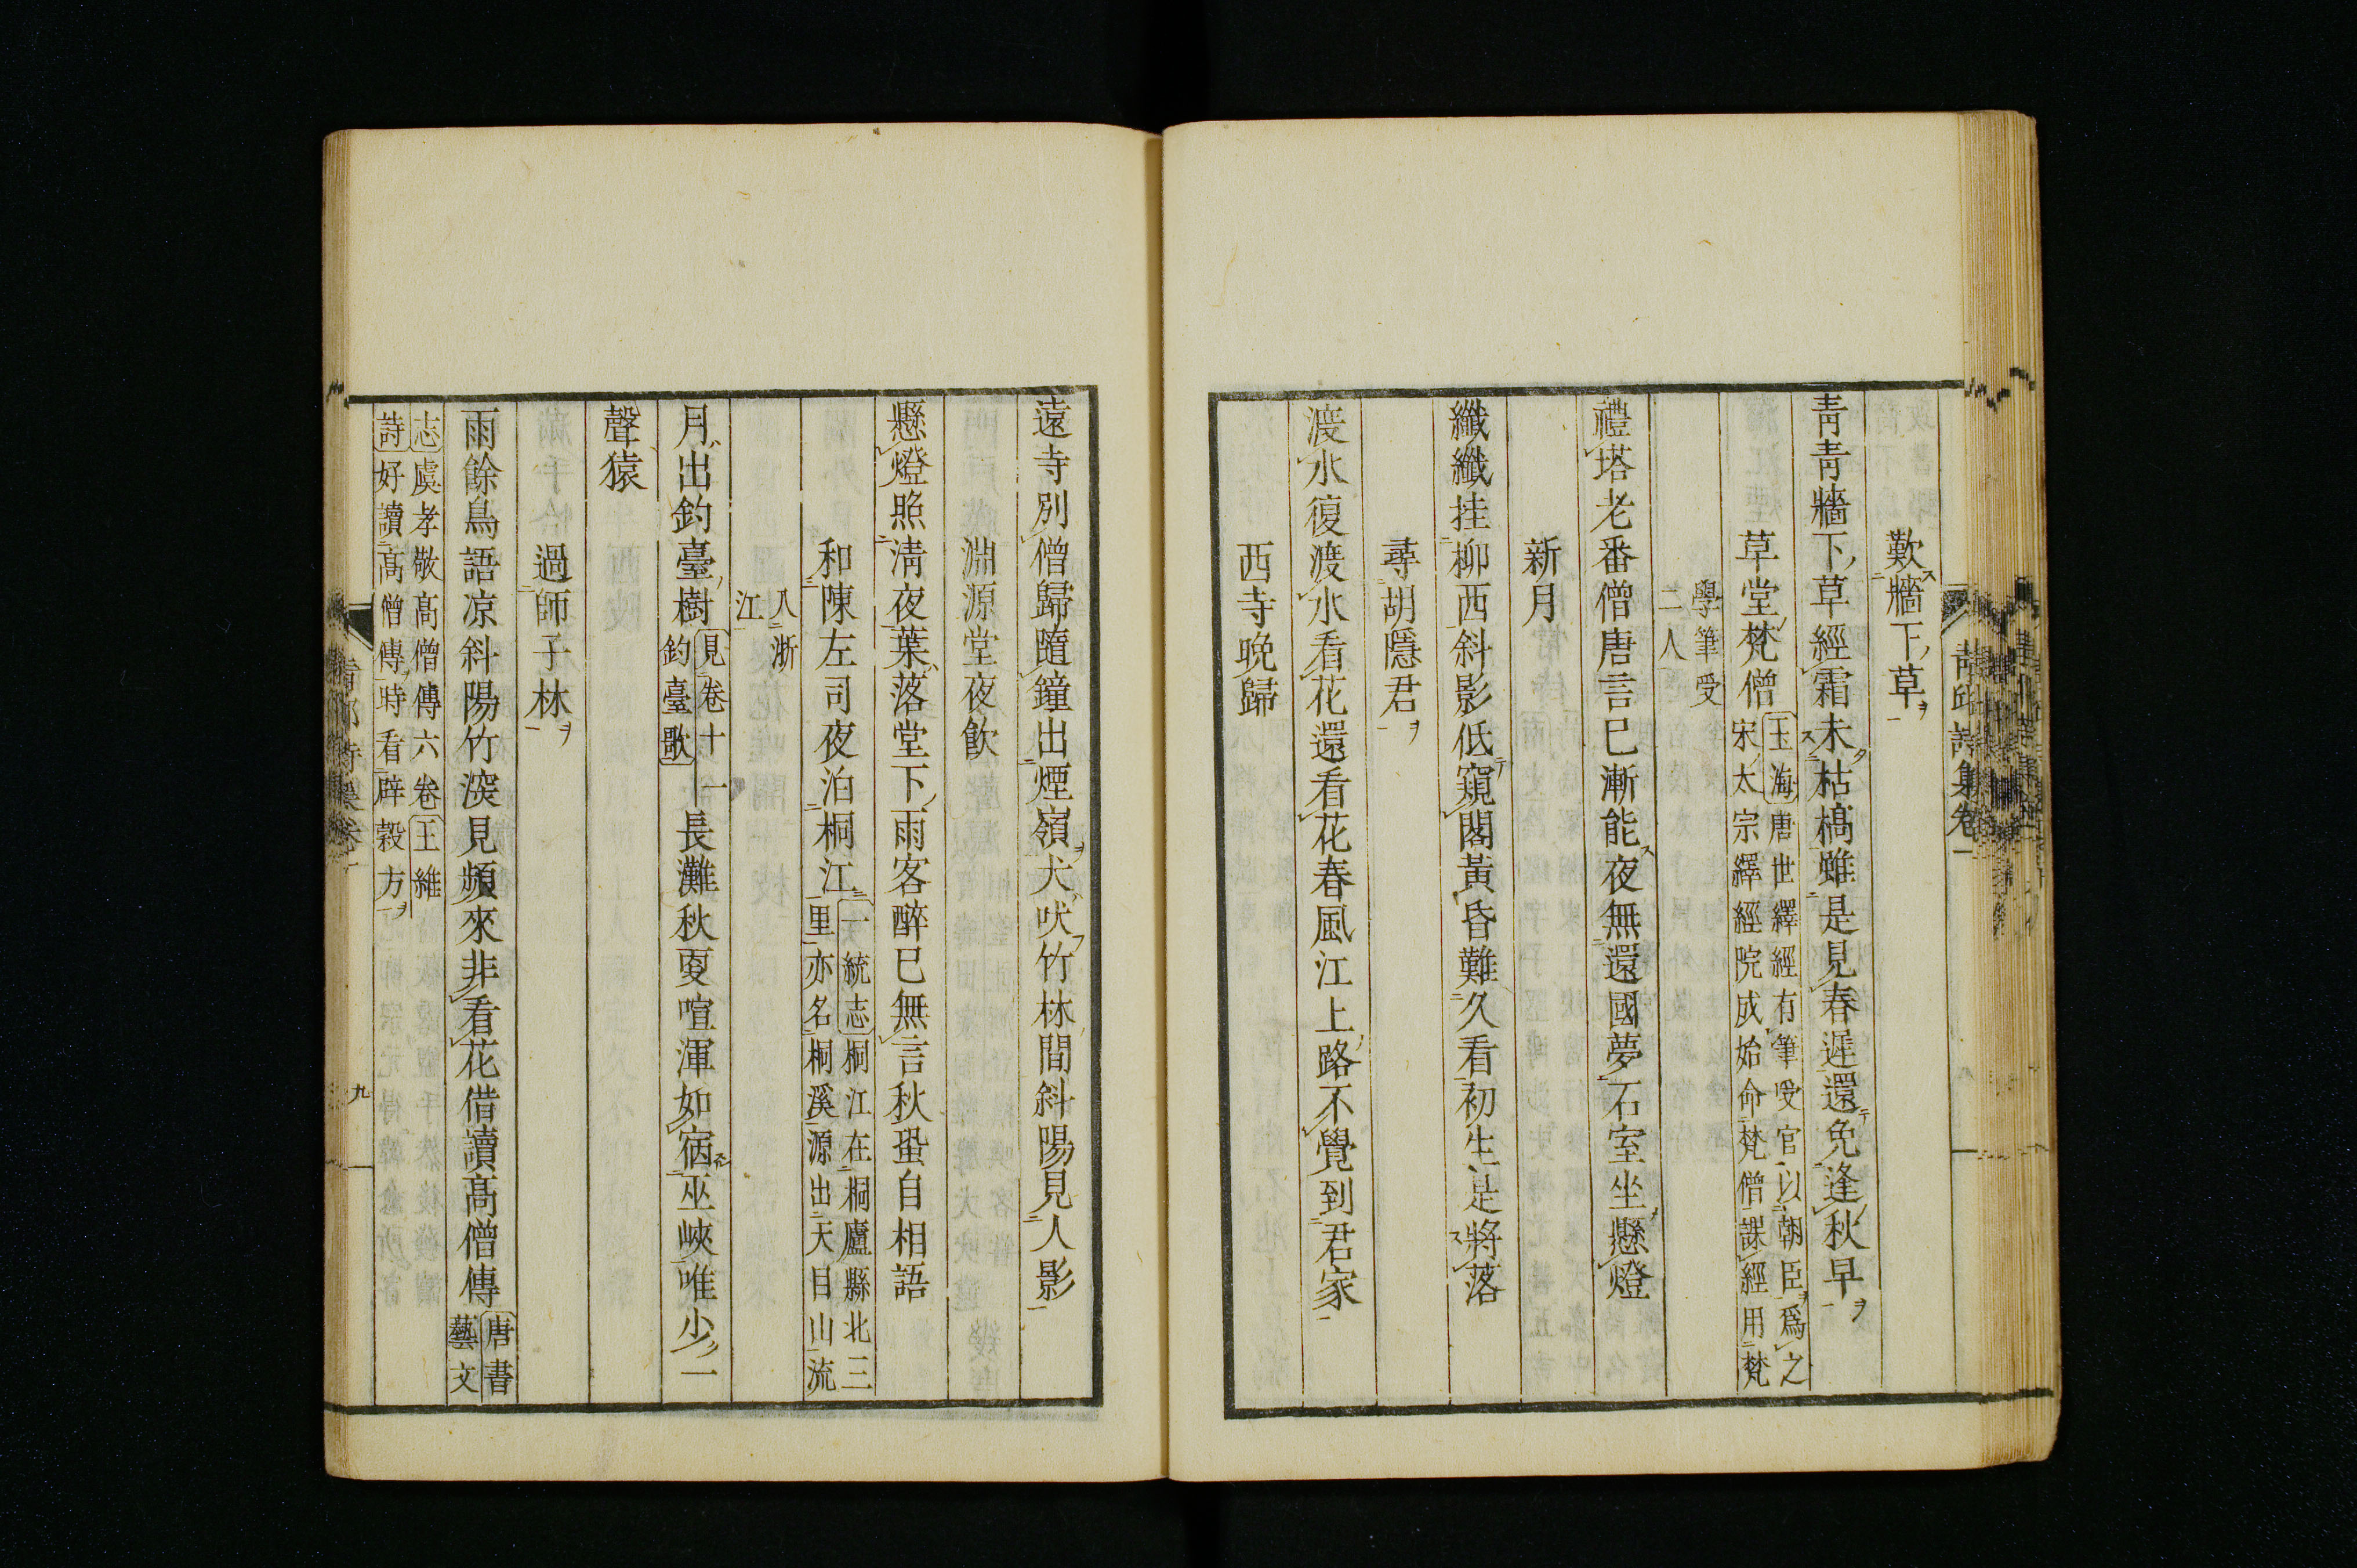 青邱詩集卷一
歎牆下草
青青牆下草經霜未枯槁雖是見春遲還免逢秋早
草堂梵僧
玉海唐世繹經有筆受官以朝臣爲之
宋太宗繹經院成始命梵僧課經用梵
學筆受
二人
禮塔老番僧唐言已漸能夜無還國夢石室坐懸燈
新月
纖纖挂柳西斜影低窺閣黃昏難久看初生是將落
尋胡隱君
渡水復渡水看花還看花春風江上路不覺到君家
西寺晚歸
遠寺別僧歸隨鐘出煙嶺犬吠竹林間斜陽見人影
淵源堂夜飮
懸燈照淸夜葉落堂下雨客醉已無言秋蛩自相語
和陳左司夜泊桐江
一統志桐江在桐廬縣北三
里亦名桐溪源出天目山流
入浙
江
月出釣臺樹
見卷十
釣臺歌
一長灘秋夏喧渾如宿巫峽唯少一
聲猿
過師子林
雨餘鳥語凉斜陽竹深見頻來非看花借讀高僧傳
唐書
藝文
志虞孝敬高僧傳六卷王維
詩好讀高僧傳時看辟穀方
九